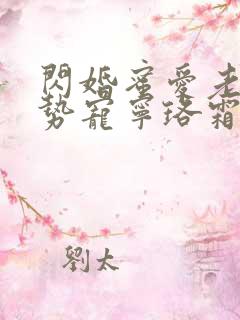 閃婚蜜愛老
勢寵寧珞霜
劉太